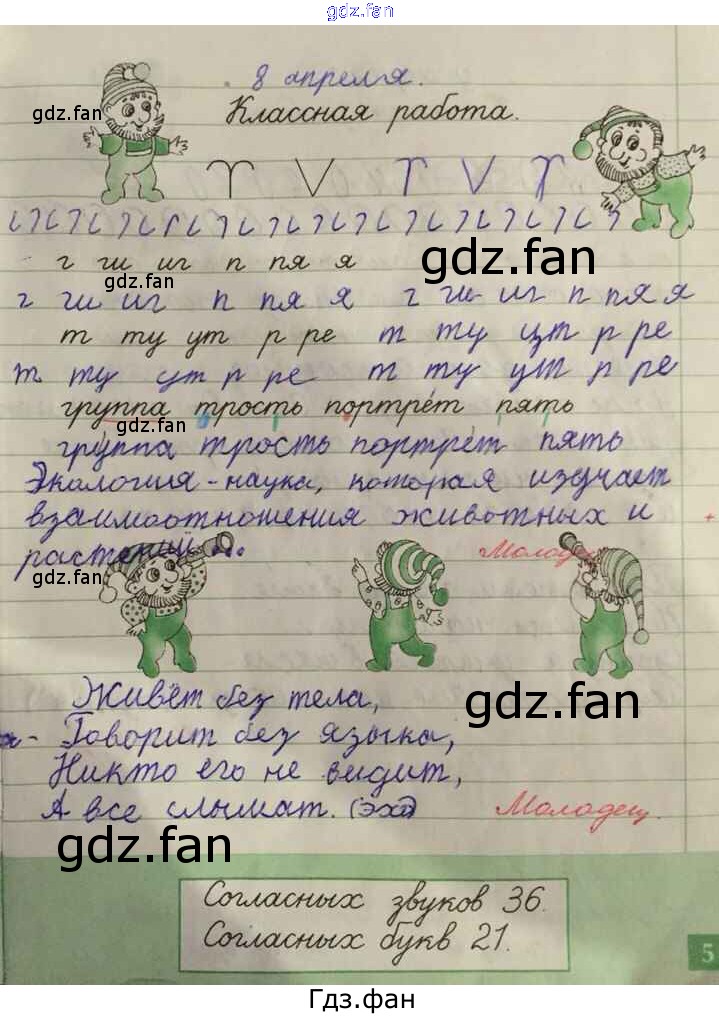 gdz.fan
8 апреля.
gdz.fan
Классная работа.
gdz.fan
г ги иг п пя я
gdz.fan
г ги иг п пя я г ги иг п пя я
т ту ут р ре т ту ут р ре
т ту ут р ре т ту ут р ре
группа трость портрет пять
gdz.fan
группа трость портрет пять
Экология - наука, которая изучает
взаимоотношения животных и
растений...
Молодец
gdz.fan
Живёт без тела,
gdz.fan
Говорит без языка,
Никто его не видит,
А все слышат. (эхо)
Молодец.
gdz.fan
Согласных звуков 36.
Согласных букв 21.
5
Гдз.фан